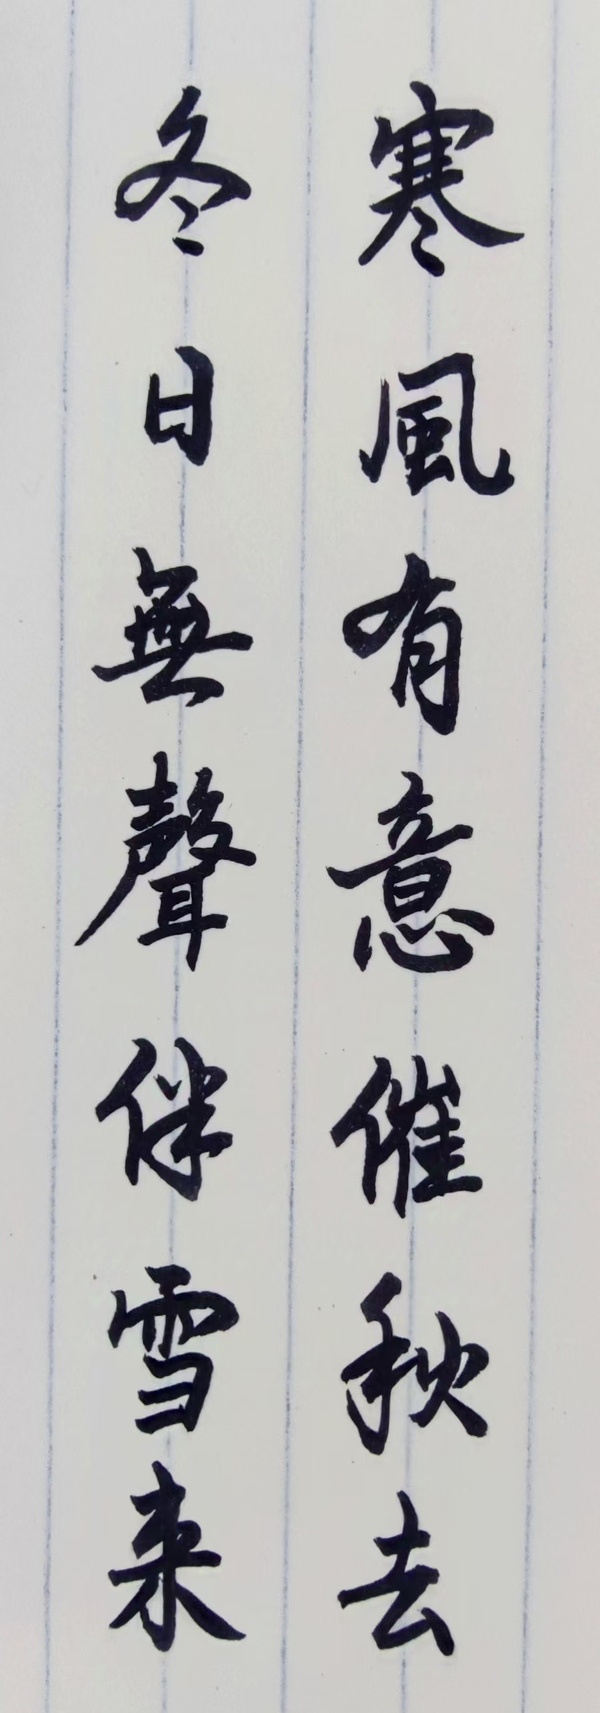 寒風有意催秋去
冬日無聲伴雪来